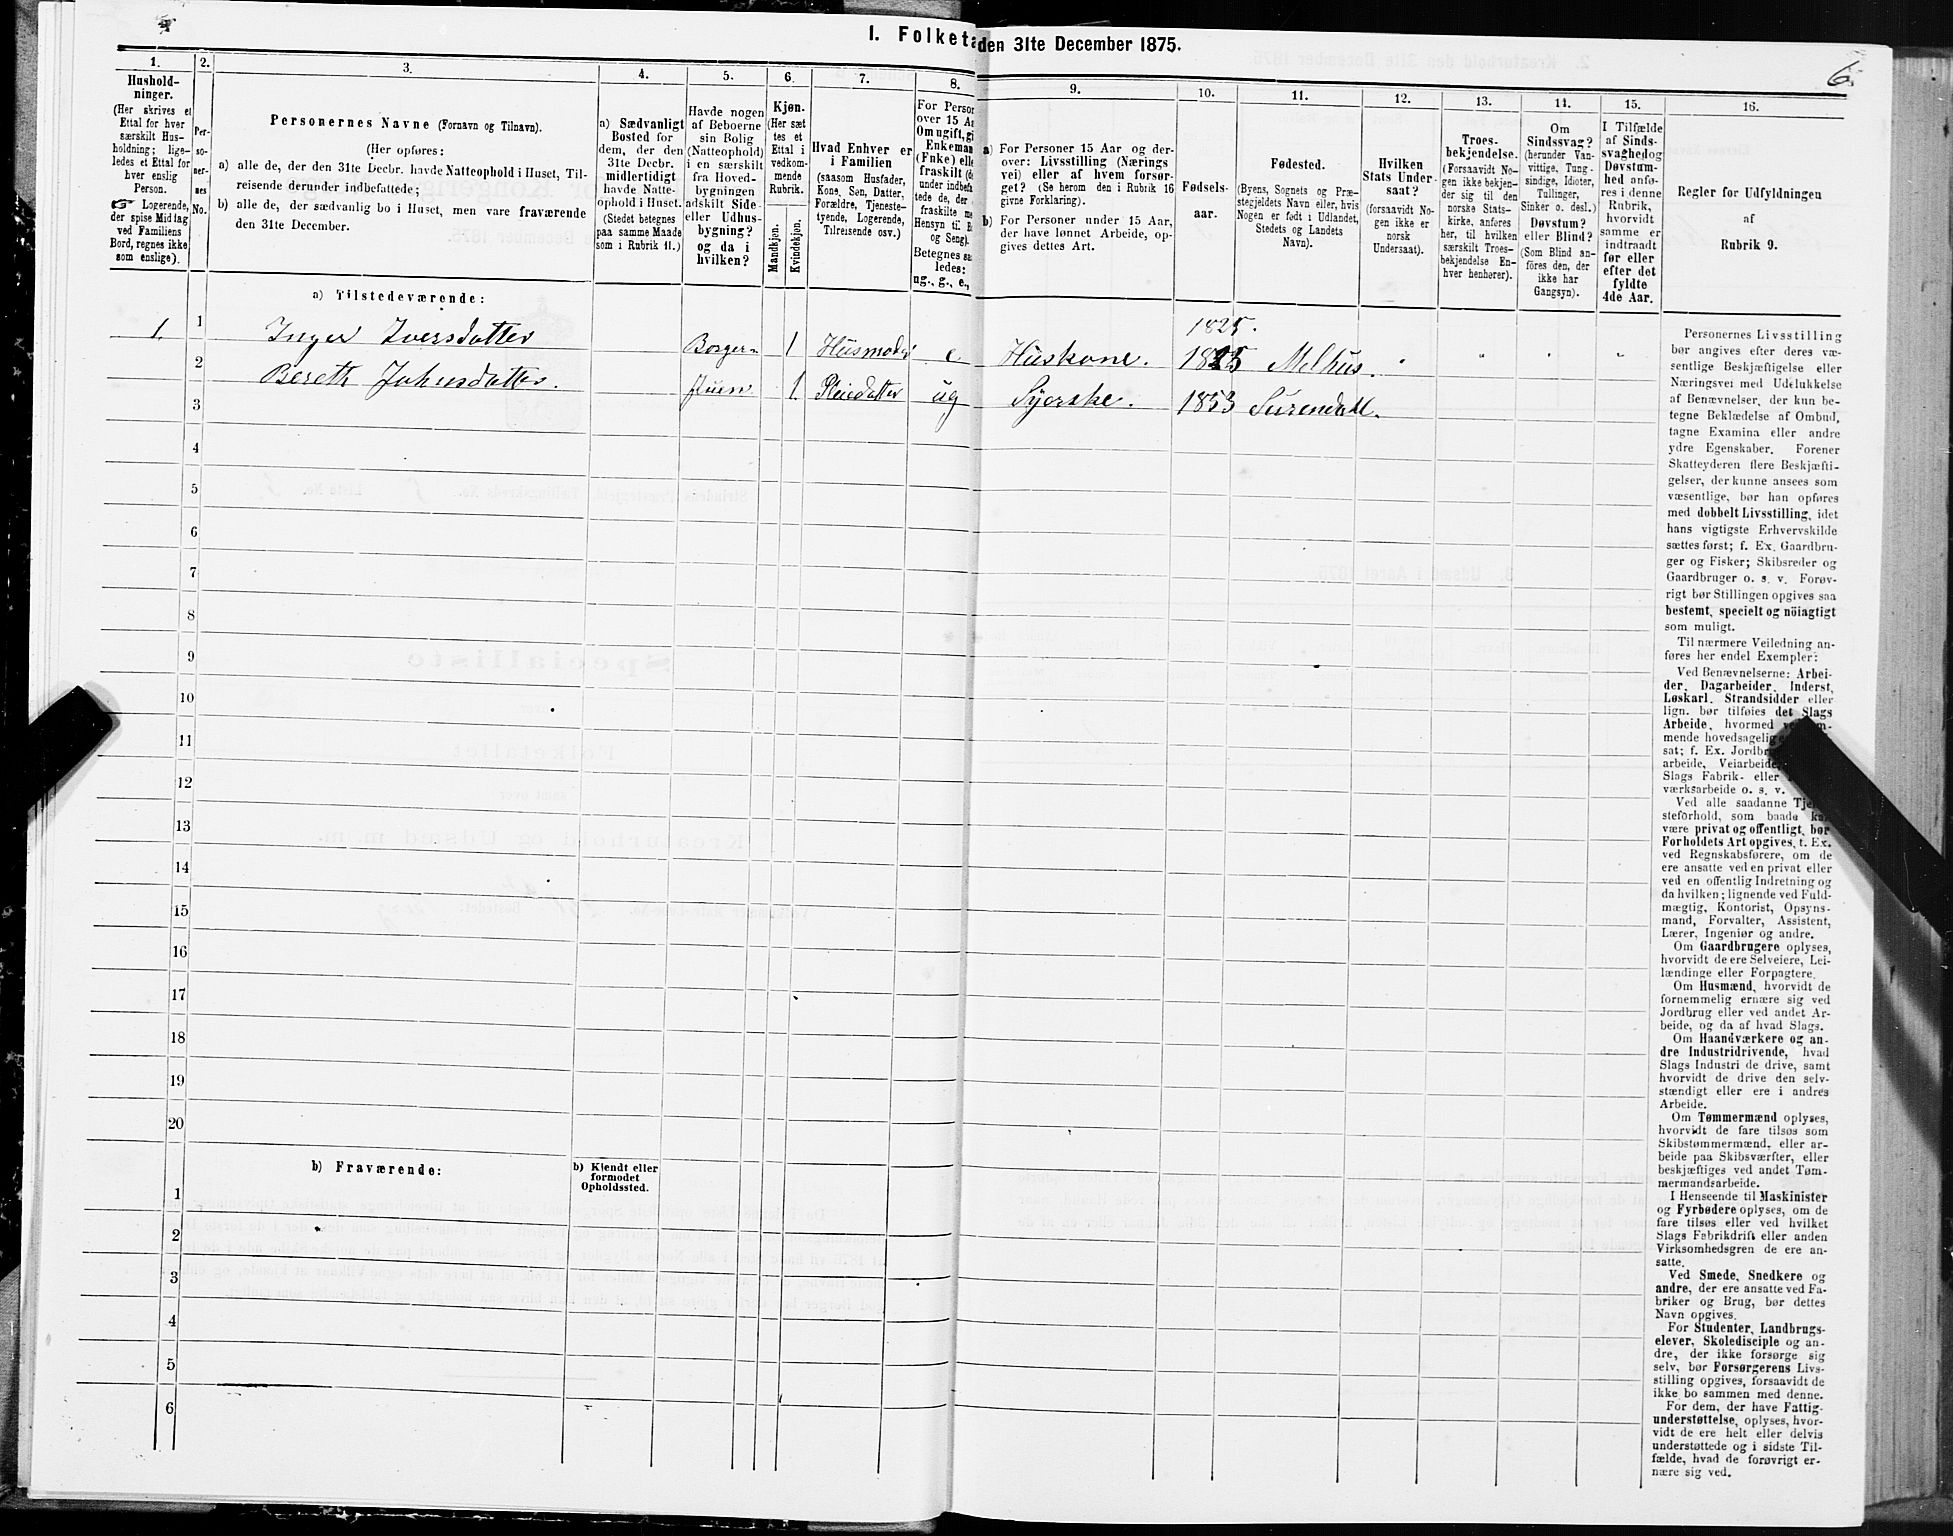 I. Folketa
den 31te December 1875.
6
1.
Hushold-
ninger.
(Her skrives et
Ettal for hver
særskilt Hus-
holdning; lige-
ledes et Ettal for
hver enslig
Person.
Logerende,
der spise Middag
ved Familiens
Bord, regnes ikke
som enslige).
2.
Per-
so-
ner-
nes
No.
3.
Personernes Navne (Fornavn og Tilnavn).
(Her opføres:
a) alle de, der den 31te Decbr. havde Natteophold i Huset, Til-
reisende derunder indbefattede;
b) alle de, der sædvanlig bo i Huset, men vare fraværende
den 31te December.
4.
a) Sædvanligt
Bosted for
dem, der den
31te Decbr.
midlertidigt
havde Natte-
ophold i Huset.
(Stedet betegnes
paa samme Maade
som i Rubrik 11.)
5.
Havde nogen
af Beboerne
sin Bolig
(Natteophold)
i en særskilt
fra Hoved-
bygningen
adskilt Side-
eller Udhus-
bygning?
og da i
hvilken?
6.
Kjøn.
(Her sæt-
tes et
Ettal i
vedkom-
mende
Rubrik.
Mandkjøn.
Kvindekjøn.
7.
Hvad Enhver er
i Familien
(saasom Husfader,
Kone, Søn, Datter,
Forældre, Tjeneste-
tyende, Logerende,
Tilreisende osv.)
8.
For Person
over 15 Aa
Om ugift, gi
Enkeman
(Enke) elle
fraskilt (d
under indbef
tede de, der
fraskilte m
Hensyn til B
og Seng).
Betegnes saa
ledes:
ug., g., e.,
9.
a) For Personer 15 Aar og der-
over: Livsstilling (Nærings
vei) eller af hvem forsør-
get? (Se herom den i Rubrik 16
givne Forklaring).
b) For Personer under 15 Aar,
der have lønnet Arbeide, op-
gives dettes Art.
10.
Fødsels-
aar.
11.
Fødested.
(Byens, Sognets og Præ-
stegjeldets Navn eller, hvis
Nogen er født i Udlandet,
Stedets og Landets
Navn).
12.
Hvilken
Stats Under-
saat?
(forsaavidt No-
gen ikke er
norsk
Undersaat).
13.
Troes-
bekjendelse.
(Forsaavidt No-
gen ikke bekjen-
der sig til den
norske Stats-
kirke, anføres
her, til hvilken
særskilt Troes-
bekjendelse En-
hver henhører).
14.
Om
Sindssvag?
(herunder Van-
vittige, Tung-
sindige, Idioter,
Tullinger,
Sinker o. desl.)
Døvstum?
eller Blind?
(Som Blind an-
føres den, der
ikke har
Gangsyn).
15.
I Tilfælde
af Sinds-
svaghed og
Døvstum-
hed anfø-
res i denne
Rubrik,
hvorvidt
samme er
indtraadt
før eller
efter det
fyldte
4de Aar.
16.
Regler for Udfyldningen
af
Rubrik 9.
a) Tilstedeværende:
1825.
1. 1 Inger Iversdatter Borger- 1 Husmoder e Huskone. 1825 Melhus. " " " "
2 Bereth Johnsdatter. stuen 1 Pleiedatter ug Syerske. 1853 Surendal.
3
4
5
6
7
8
9
10
11
12
13
14
15
16
17
18
19
20
b) Fraværende:
b) Kjendt eller
formodet
Opholdssted.
1
2
3
4
5
6
Personernes Livsstilling
bør angives efter deres væ-
sentlige Beskjæftigelse eller
Næringsvei med Udelukkelse
af Benævnelser, der kun be-
tegne Beklædelse af Ombud,
tagne Examina eller andre
ydre Egenskaber. Forener
Skatteyderen flere Beskjæfti-
gelser, der kunne ansees som
væsentlige, bør han opføres
med dobbelt Livsstilling, idet
hans vigtigste Erhvervskilde
sættes først; f. Ex. Gaardbru-
ger og Fisker; Skibsreder og
Gaardbruger o. s. v. Forøv-
rigt bør Stillingen opgives saa
bestemt, specielt og nöiagtigt
som muligt.
Til nærmere Veiledning an-
føres her endel Exempler:
Ved Benævnelserne: Arbei-
der, Dagarbeider, Inderst,
Løskarl, Strandsidder eller
lign. bør tilføies det Slags
Arbeide, hvormed
mende hovedsagelig
sat; f. Ex. Jordbr
arbeide, Veiarbeide,
Slags Fabrik- eller
værksarbeide o. s. v.
Ved alle saadanne Tje
steforhold, som baade ka
være privat og offentligt, bør
Forholdets Art opgives, t. Ex.
ved Regnskabsførere, om de
ere ansatte ved en privat eller
ved en offentlig Indretning og
da hvilken; lignende ved Fuld-
mægtig, Kontorist, Opsyns-
mand, Forvalter, Assistent,
Lærer, Ingeniør og andre.
Om Gaardbrugere oplyses,
hvorvidt de ere Selveiere, Lei-
lændinge eller Forpagtere.
Om Husmænd, hvorvidt de
fornemmelig ernære sig ved
Jordbrug eller ved andet Ar-
beide, og da af hvad Slags.
Om Haandværkere og an-
dre Industridrivende, hvad
Slags Industri de drive, samt
hvorvidt de drive den selv-
stændigt eller ere i andres
Arbeide.
Om Tømmermænd oplyses,
hvorvidt de fare tilsøs som
Skibstømmermænd, eller ar-
beide paa Skibsværfter, eller
beskjæftiges ved andet Tøm-
mermandsarbeide.
I Henseende til Maskinister
og Fyrbødere oplyses, om de
fare tilsøs eller ved hvilket
Slags Fabrikdrift eller anden
Virksomhedsgren de ere an-
satte.
Ved Smede, Snedkere og
andre, der ere ansatte ved Fa-
briker og Brug, bør dettes
Navn opgives.
For Studenter, Landbrugs-
elever, Skoledisciple og an-
dre, der ikke forsørge sig
selv, bør Forsørgerens Livs-
stilling opgives, forsaavidt de
ikke bo sammen med denne.
For dem, der have Fattig-
understøttelse, oplyses, hvor-
vidt de ere helt eller delvis
understøttede og i sidste Til-
fælde, hvad de forøvrigt er-
nære sig ved.